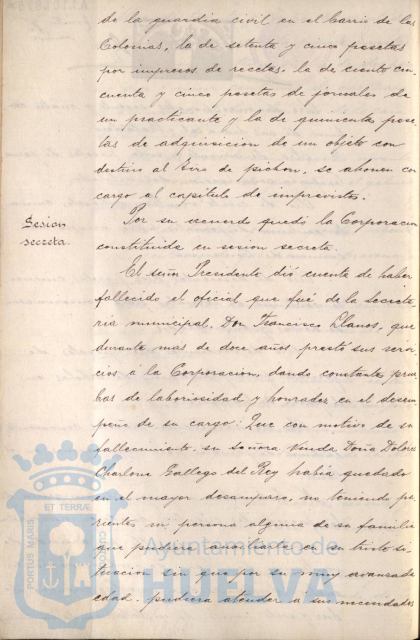 de la guardia civil en el barrio de las
Colonias, la de setenta y cinco pesetas
por impresos de recetas, la de ciento cin
cuenta y cinco pesetas de jornales de
un practicante y la de quinientas pese
tas de adquisicion de un objeto con
destino al Tiro de pichon, se abonen con
cargo al capitulo de imprevistos.
Sesion
secreta.
Por su acuerdo quedó la Corporacion
constituida en sesion secreta.
El señor Presidente dió cuenta de haber
fallecido el oficial que fué de la Secreta
ria municipal, Don Francisco Llanos, que
durante mas de doce años prestó sus servi
cios á la Corporacion, dando constantes prue
bas de laboriosidad y honradez en el desem
peño de su cargo: Que con motivo de su
fallecimiento, su señora Viuda Doña Dolores
Charlone Gallego del Rey habia quedado
en el mayor desamparo, no teniendo pa
rientes ni persona alguna de su familia
que pudiera aminorar en su triste si
tuacion sin que por su muy avanzada
edad, pudiera atender á sus necesidades
PORTUS MARIS
ET TERRÆ
CUSTODIA
Ayuntamiento de
HUELVA